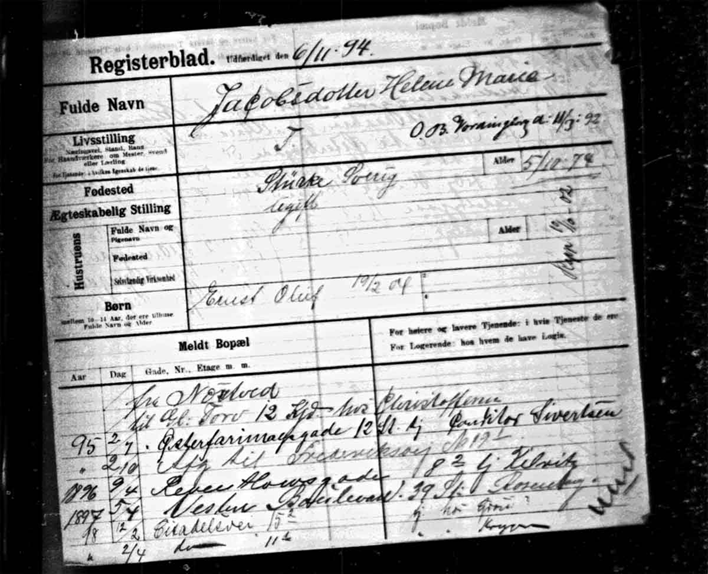 Registerblad. Udfærdiget den 6/11. 94.
Fulde Navn Jacobsdotter Helene Maria
Livsstilling
Næringsvei, Stand, Rang.
For Haandværkere om Mester, Svend
eller Lærling.
T. O.B. Vordingborg d: 11/3. 92
Fødested Sverig Alder 5/10 74
Ægteskabelig Stilling ugift
Hustruens
Fulde Navn og
Pigenavn
Alder
Fødested
Selvstændig Virksomhed
Børn
mellem 10-14 Aar, der ere tilhuse
Fulde Navn og Alder
Ernst Oluf 19/2 04
Meldt Bopæl
For høiere og lavere Tjenende: i hvis Tjeneste de ere
For Logerende: hos hvem de have Logis.
Aar Dag Gade, Nr., Etage m. m.
fra Næstved
til Gl. Torv 12 Kjd hos Christoffersen
95 2/7 Østerfarimagsgade 12 St. tj Conditor Sivertsen
" 2/10 Afg til Frederiksvej No 19
1896 9/4 Reventlowsgade 8 tj
1897 5/4 Vester Boulevard 39 St. Rosenberg
98 12/2 Citadelsvei 15 tj hos
" 2/4 11